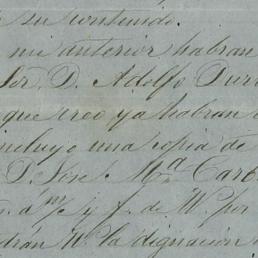 su contenido.
mi anterior habran
Sor. D. Adolfo
que creo ya habran
incluyo una copia de
D. José Ma. Carb
a m/ y f. de W. por
drán W. la dignacion